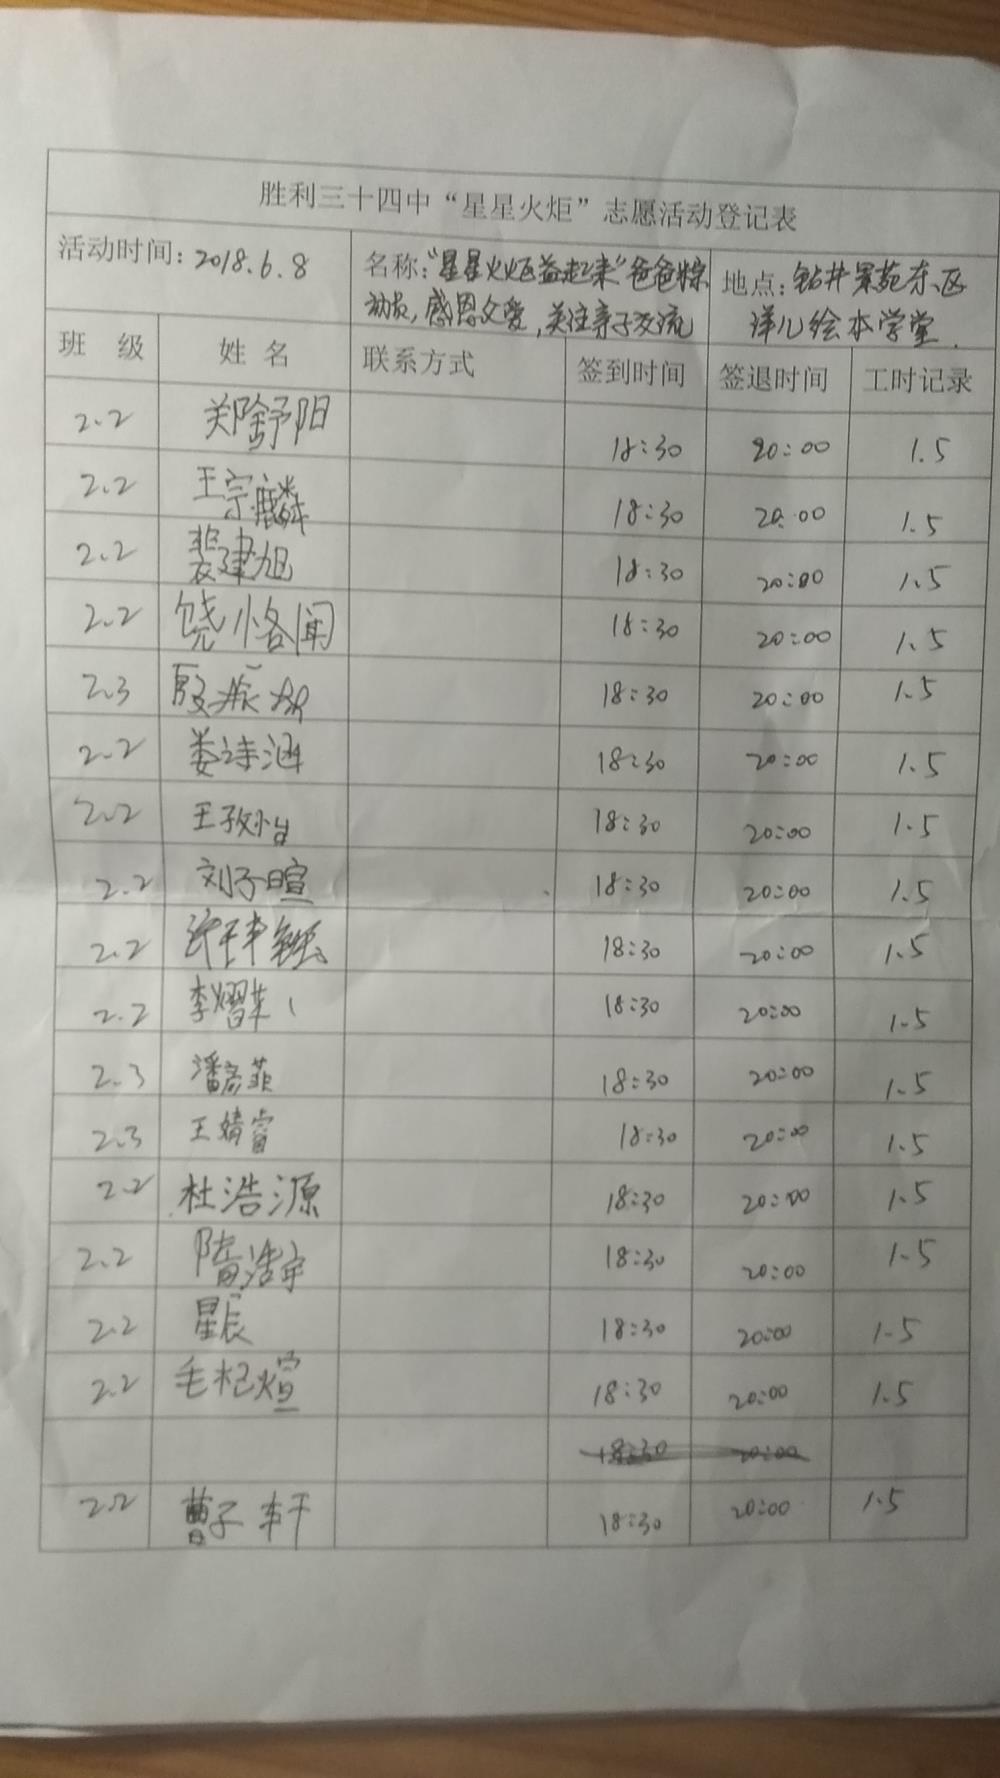 胜利三十四中“星星火炬”志愿活动登记表
活动时间：2018.6.8
名称：“星星火炬益起来”爸爸粽
动员，感恩父爱，关注亲子交流
地点：钻井景苑东区
洋儿绘本学堂.
班 级 姓 名 联系方式 签到时间 签退时间 工时记录
2.2 郑舒阳 18:30 20:00 1.5
2.2 王宗麟 18:30 20:00 1.5
2.2 裴建旭 18:30 20:00 1.5
2.2 饶恪闻 18:30 20:00 1.5
2.3 殷 18:30 20:00 1.5
2.2 娄诗涵 18:30 20:00 1.5
2.2 王孜怡 18:30 20:00 1.5
2.2 刘子暄 18:30 20:00 1.5
2.2 18:30 20:00 1.5
2.2 李熠 18:30 20:00 1.5
2.3 潘彦菲 18:30 20:00 1.5
2.3 王婧睿 18:30 20:00 1.5
2.2 杜浩源 18:30 20:00 1.5
2.2 隋浩宇 18:30 20:00 1.5
2.2 星辰 18:30 20:00 1.5
2.2 毛杞煊 18:30 20:00 1.5
18:30 20:00
2.2 曹子轩 18:30 20:00 1.5